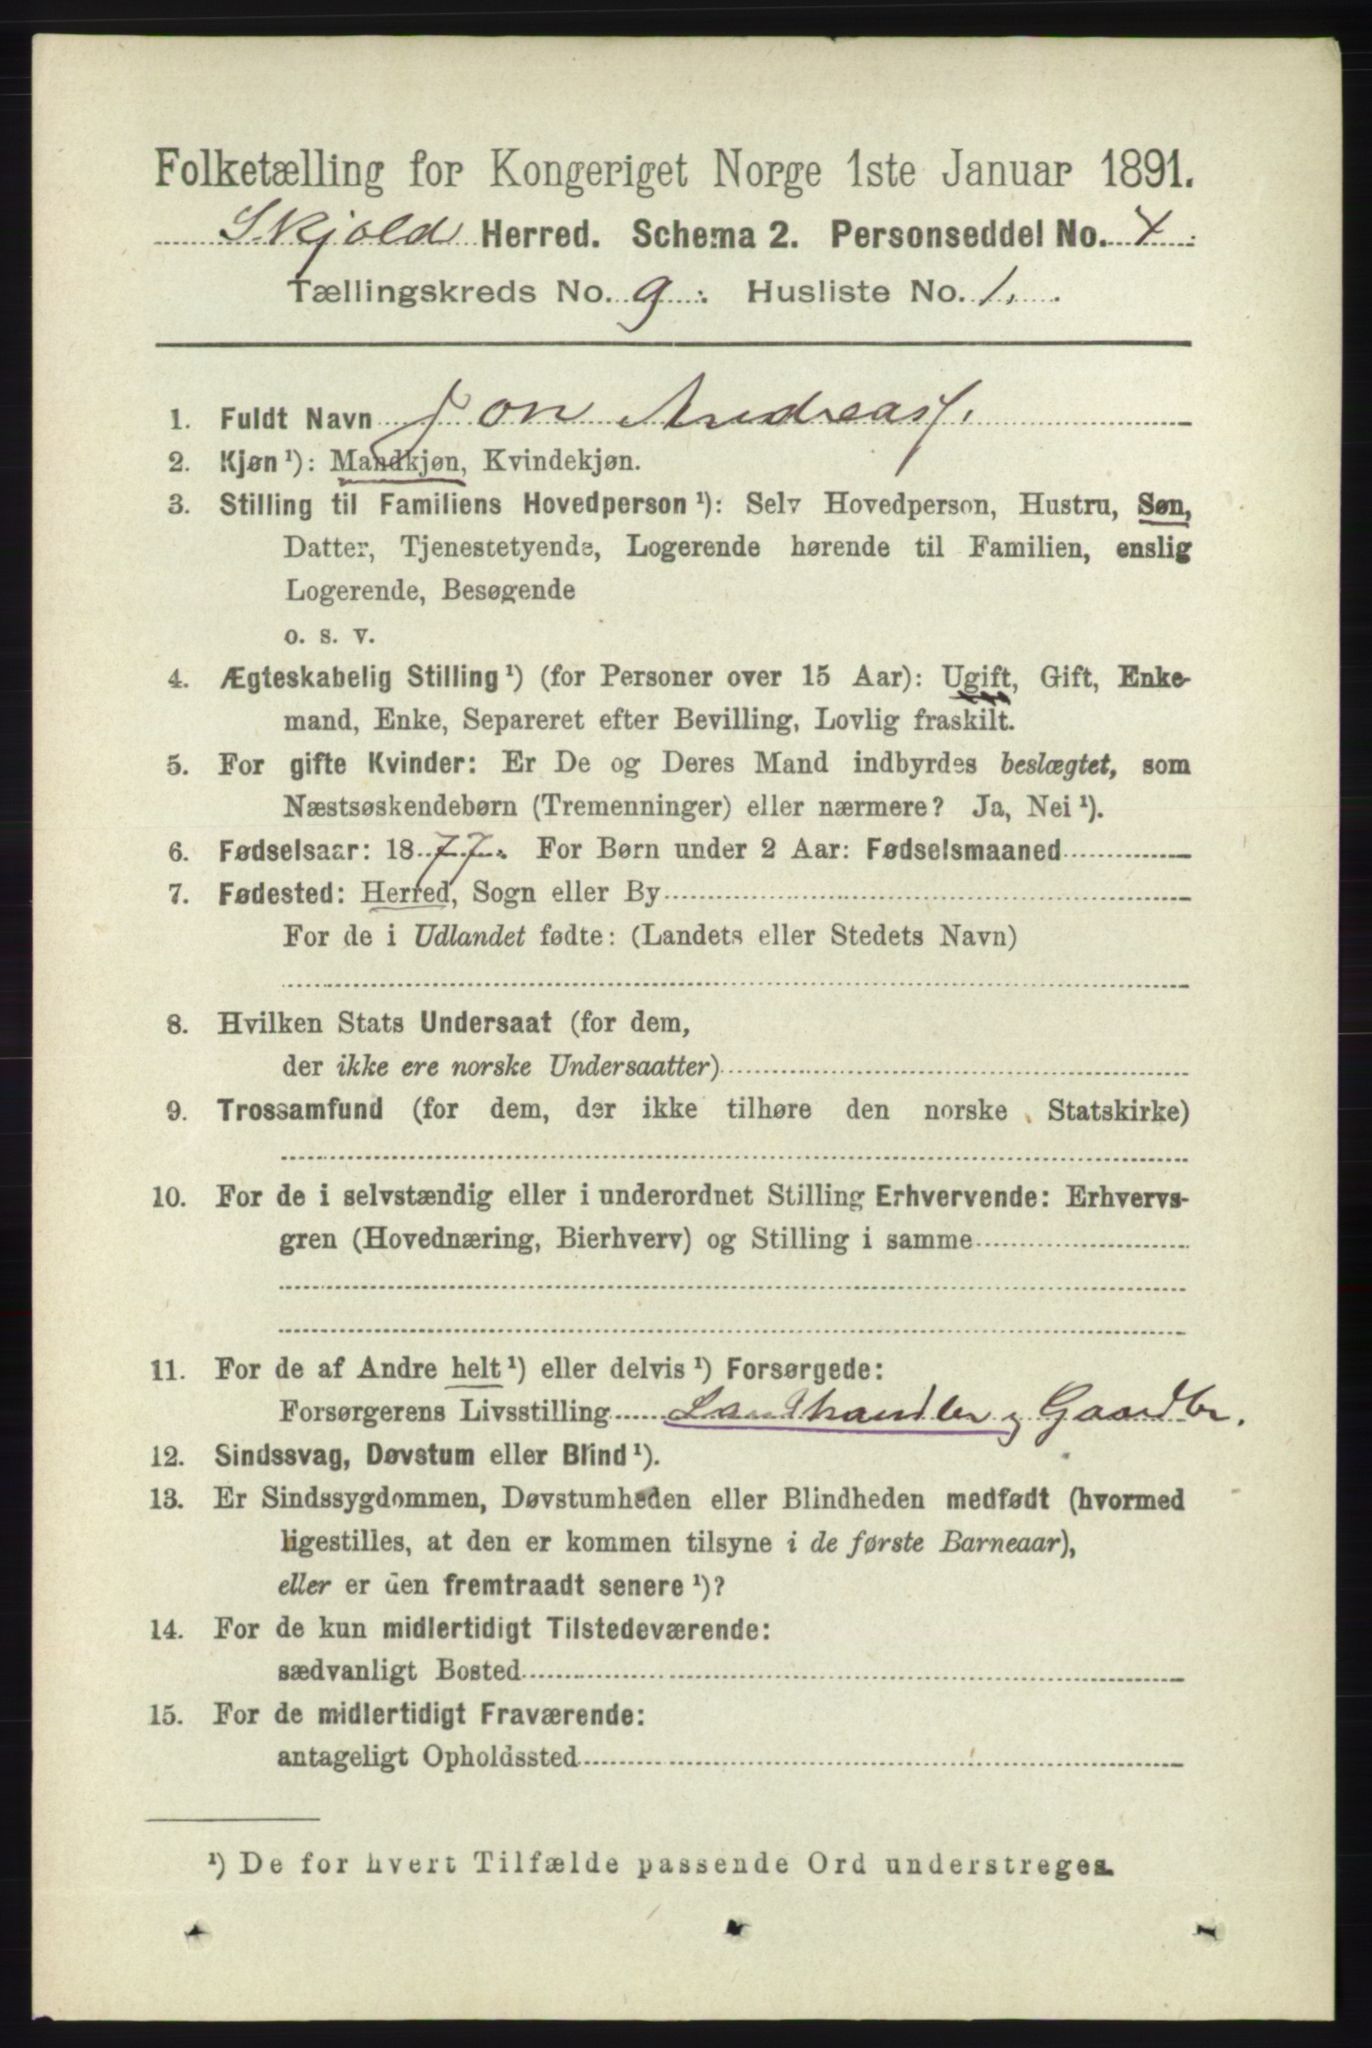 Folketælling for Kongeriget Norge 1ste Januar 1891.
Skjold Herred. Schema 2. Personseddel No. 4
Tællingskreds No. 9. Husliste No. 1.
1. Fuldt Navn Jon Andreass.
2. Kjøn ¹): Mandkjøn, Kvindekjøn.
3. Stilling til Familiens Hovedperson ¹): Selv Hovedperson, Hustru, Søn,
Datter, Tjenestetyende, Logerende hørende til Familien, enslig
Logerende, Besøgende
o. s. v.
4. Ægteskabelig Stilling ¹) (for Personer over 15 Aar): Ugift, Gift, Enke-
mand, Enke, Separeret efter Bevilling, Lovlig fraskilt.
5. For gifte Kvinder: Er De og Deres Mand indbyrdes beslægtet, som
Næstsøskendebørn (Tremenninger) eller nærmere? Ja, Nei ¹).
6. Fødselsaar: 1877. For Børn under 2 Aar: Fødselsmaaned
7. Fødested: Herred, Sogn eller By
For de i Udlandet fødte: (Landets eller Stedets Navn)
8. Hvilken Stats Undersaat (for dem,
der ikke ere norske Undersaatter)
9. Trossamfund (for dem, der ikke tilhøre den norske Statskirke)
10. For de i selvstændig eller i underordnet Stilling Erhvervende: Erhvervs-
gren (Hovednæring, Bierhverv) og Stilling i samme
11. For de af Andre helt ¹) eller delvis ¹) Forsørgede:
Forsørgerens Livsstilling Landhandler og Gaardbr.
12. Sindssvag, Døvstum eller Blind ¹).
13. Er Sindssygdommen, Døvstumheden eller Blindheden medfødt (hvormed
ligestilles, at den er kommen tilsyne i de første Barneaar),
eller er den fremtraadt senere ¹)?
14. For de kun midlertidigt Tilstedeværende:
sædvanligt Bosted
15. For de midlertidigt Fraværende:
antageligt Opholdssted
¹) De for hvert Tilfælde passende Ord understreges.